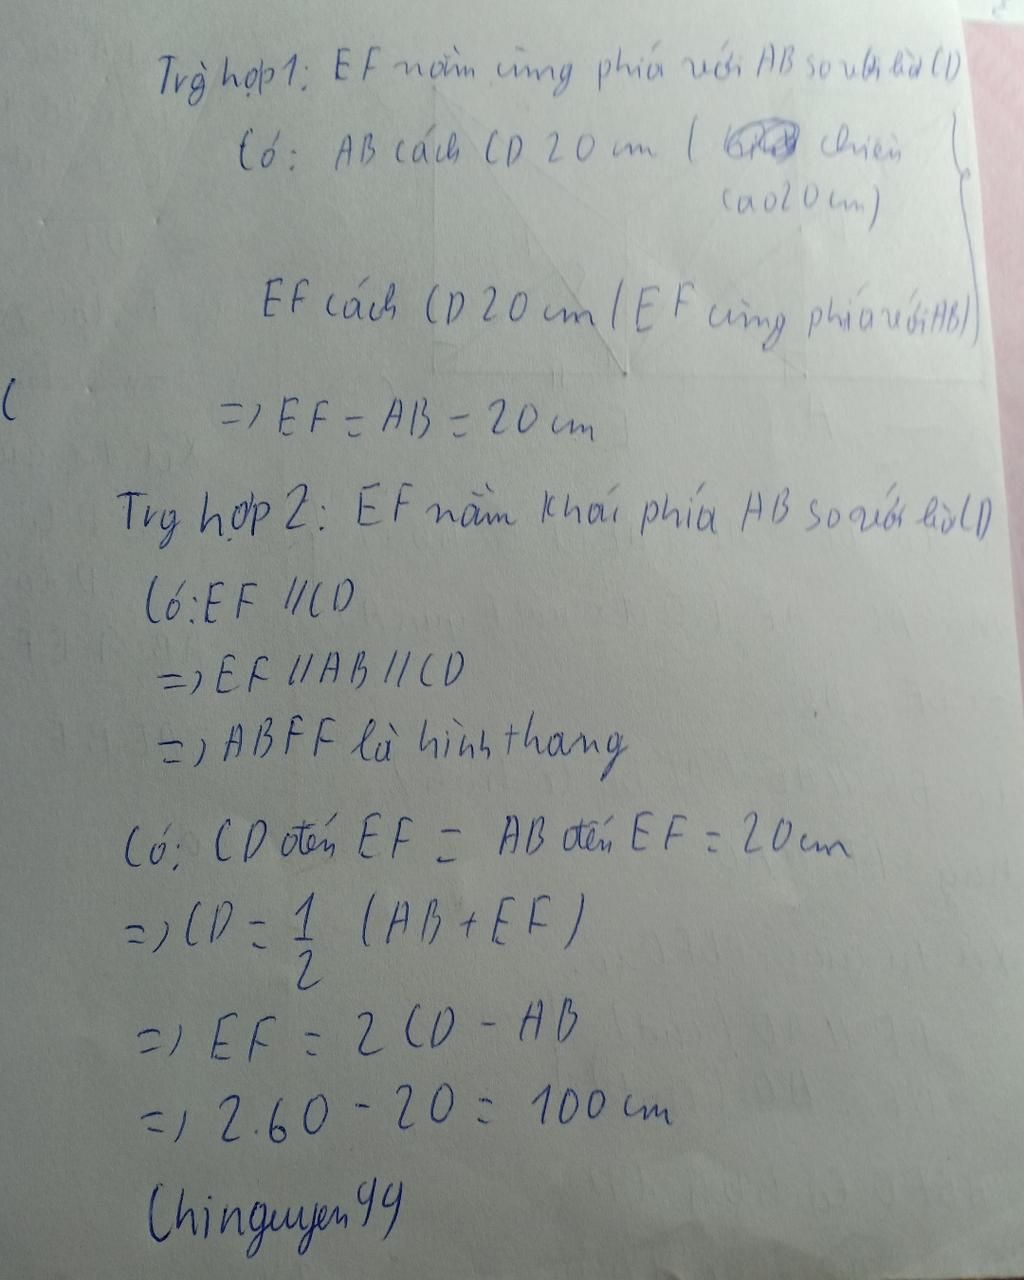 Trg hợp 1: EF nằm cùng phía với AB so với bờ CD
Có: AB cách CD 20 cm ( chiều
cao 20 cm)
EF cách CD 20 cm (EF cùng phía với AB)
(
=> EF = AB = 20 cm
Trg hợp 2: EF nằm khác phía AB so với bờ CD
Có: EF // CD
=> EF // AB // CD
=> ABFF là hình thang
Có: CD đến EF = AB đến EF = 20 cm
=> CD = 1/2 (AB + EF)
=> EF = 2 CD - AB
=> 2.60 - 20 = 100 cm
Chinguyen99